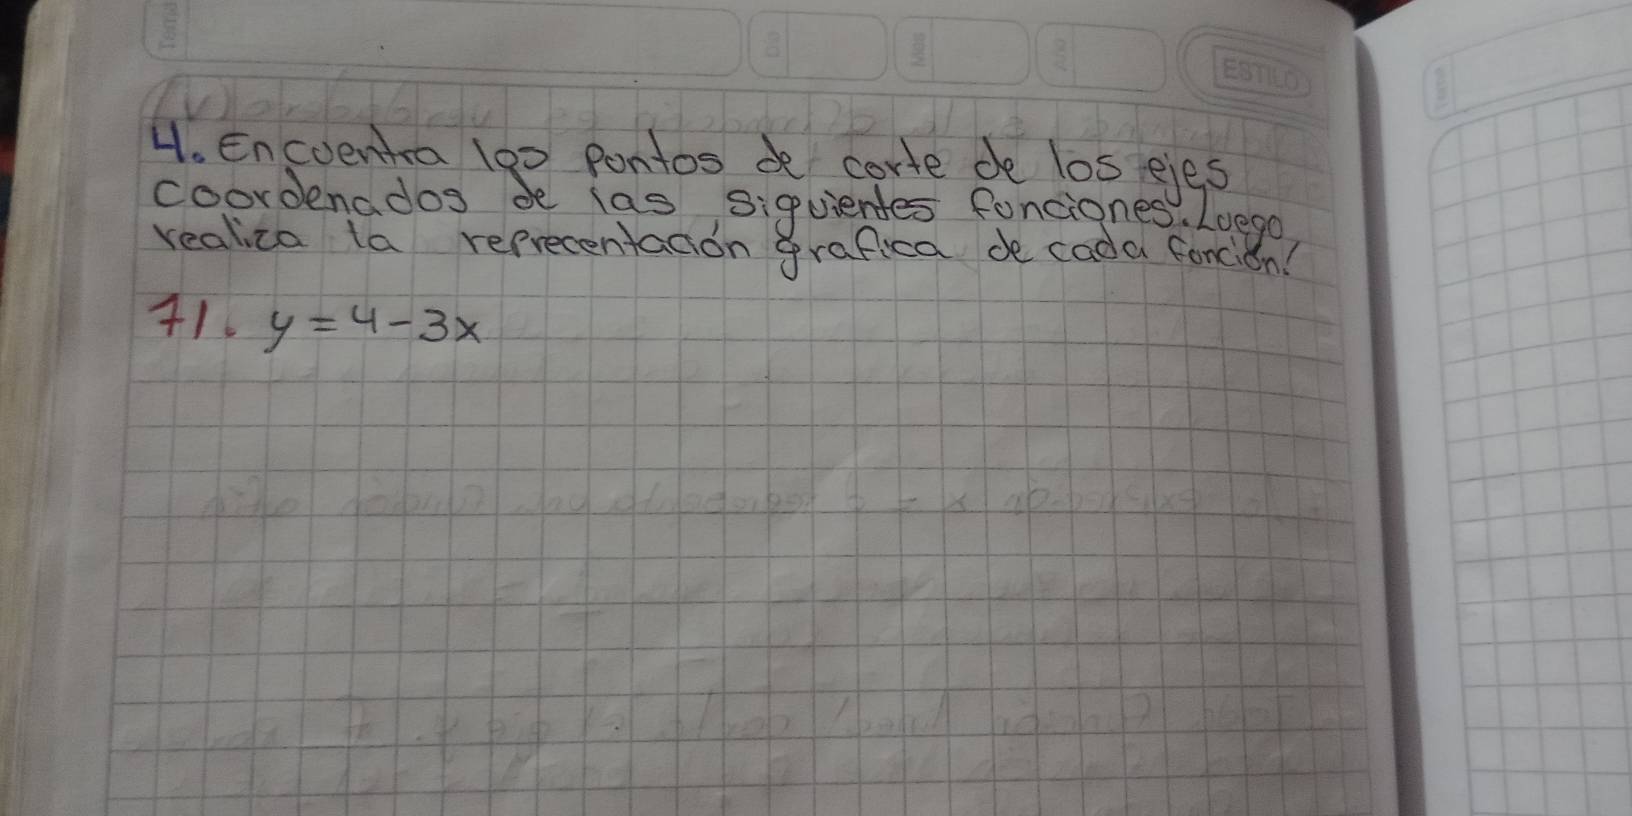 Tema
Dia
Mes
Año
ESTILO
4. Encuentra los pontos de corte de los ejes
coordenados de las siguientes funciones. Luego,
realiza la reprecentación grafica de cada función!
71. y = 4 - 3x